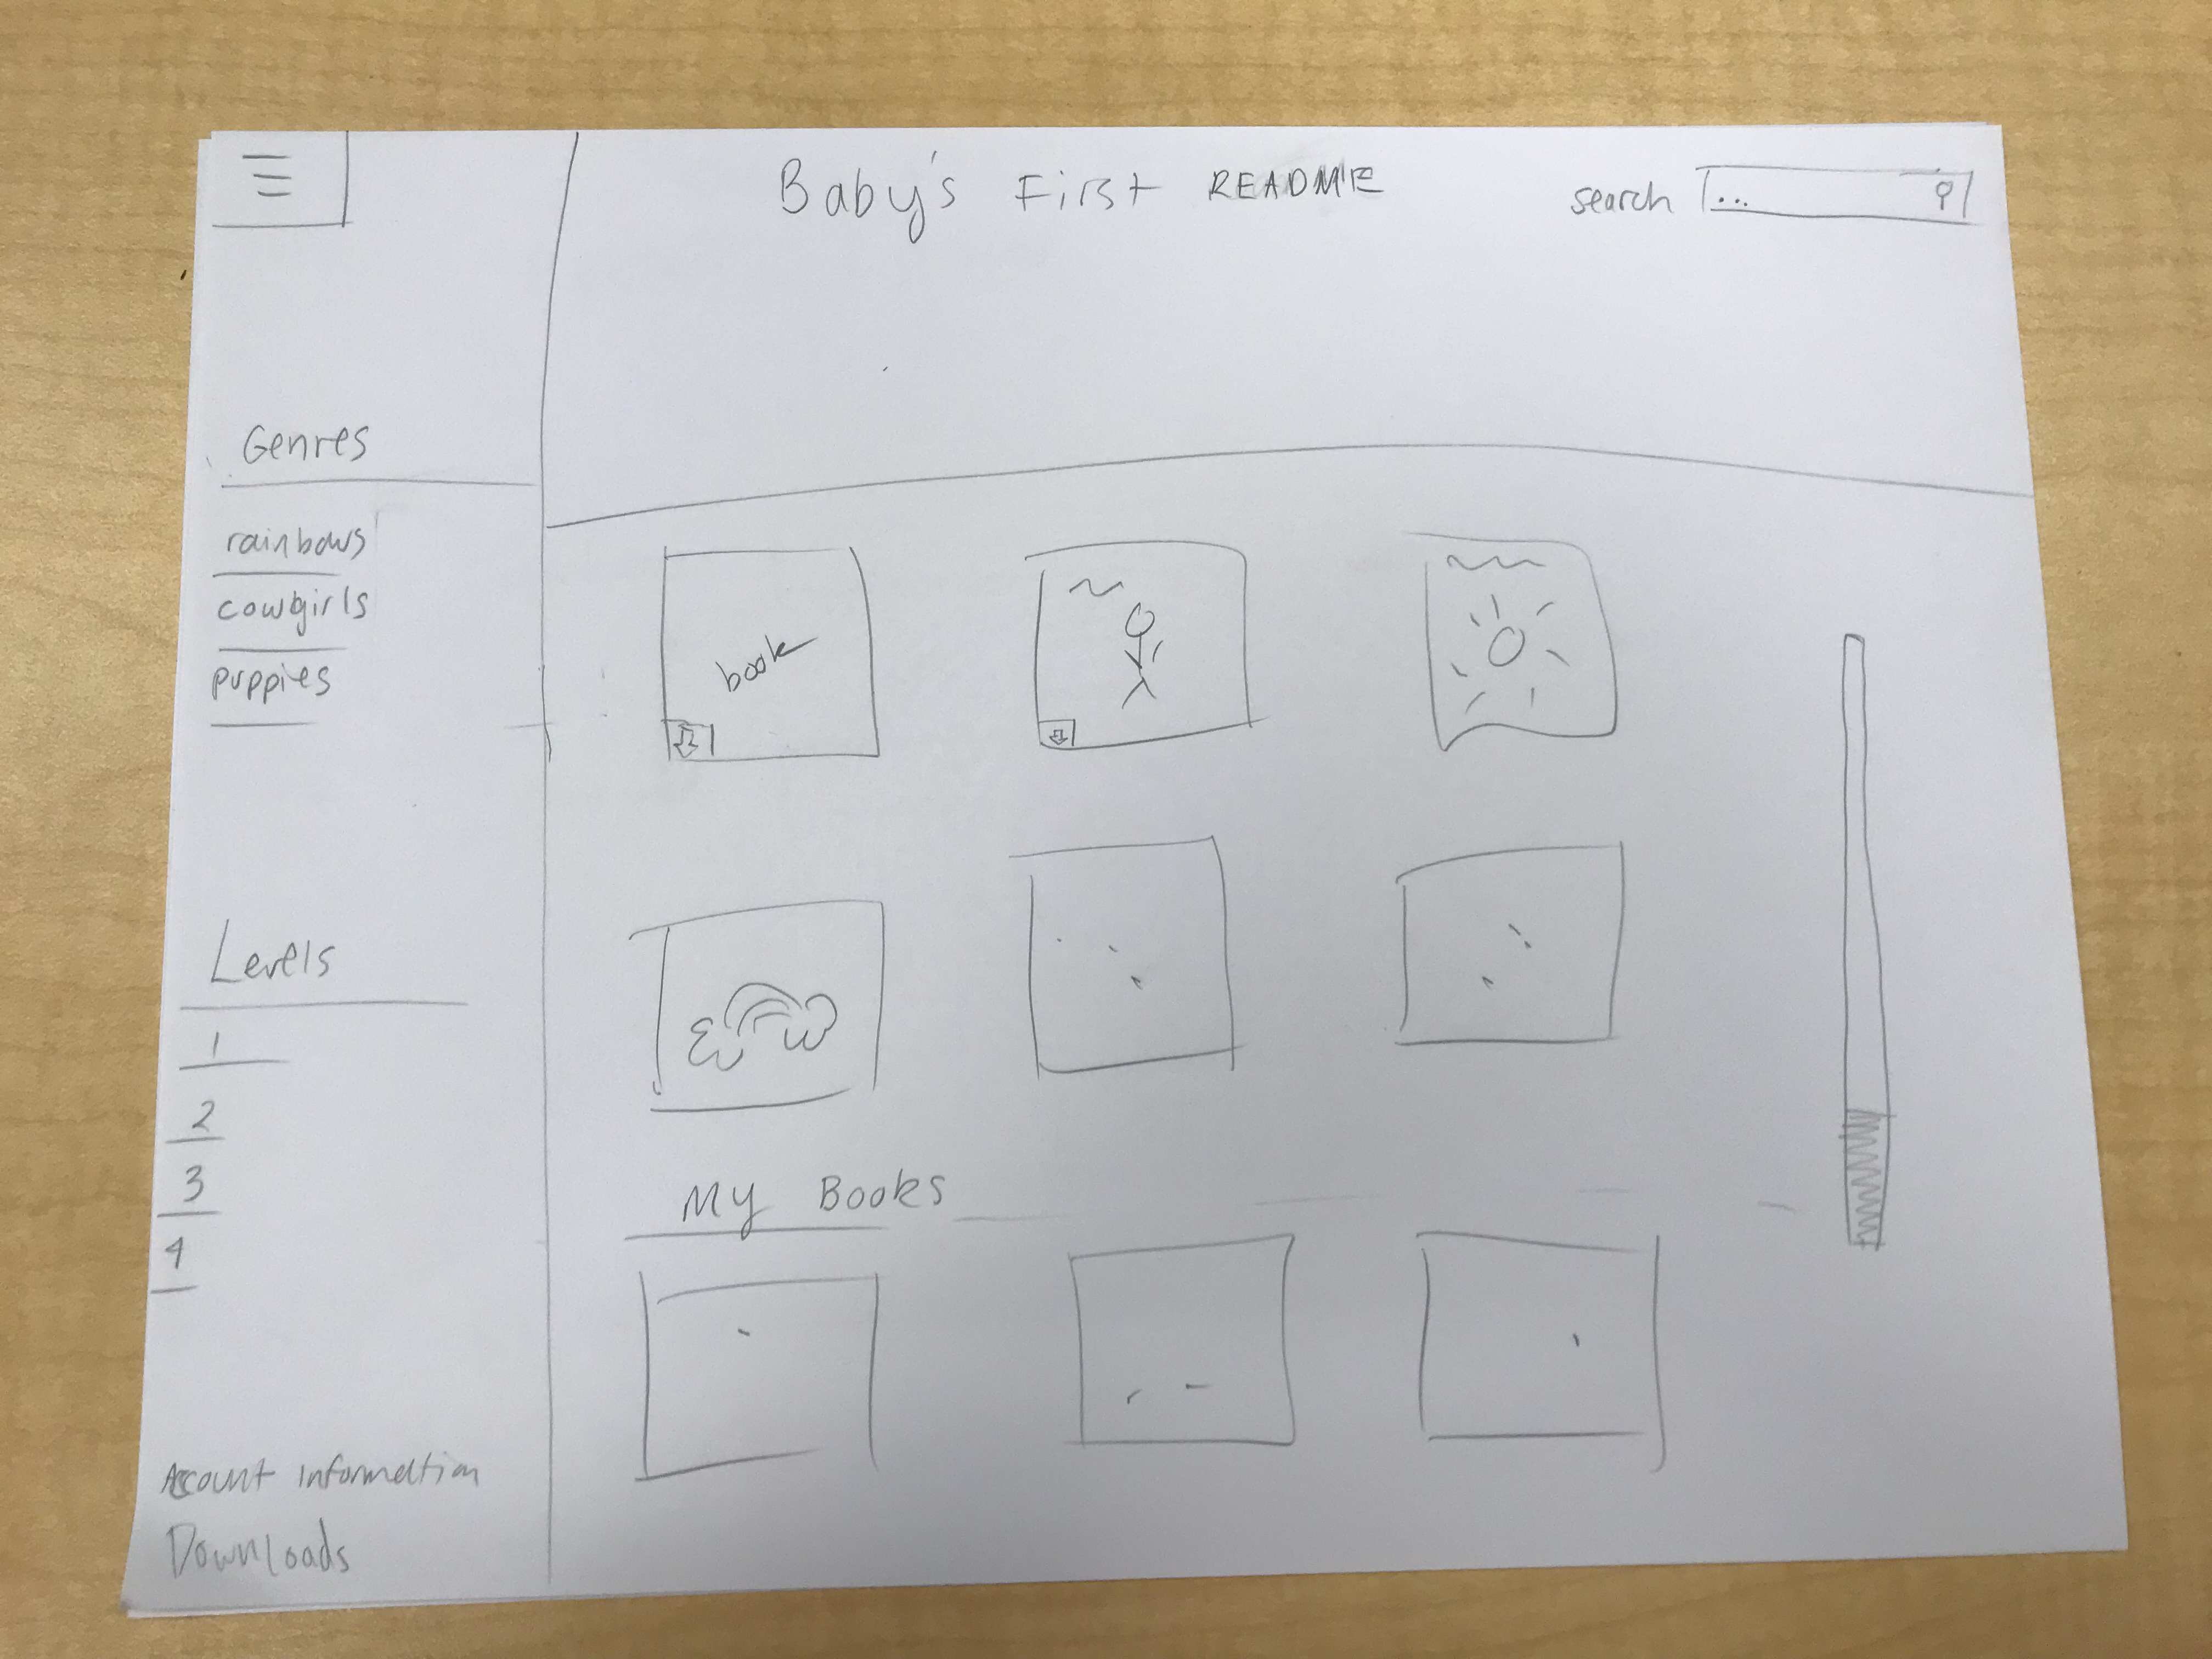 Baby's First README
search ...
Genres
rainbows
cowgirls
puppies
Levels
1
2
3
4
Account Information
Downloads
book
My Books